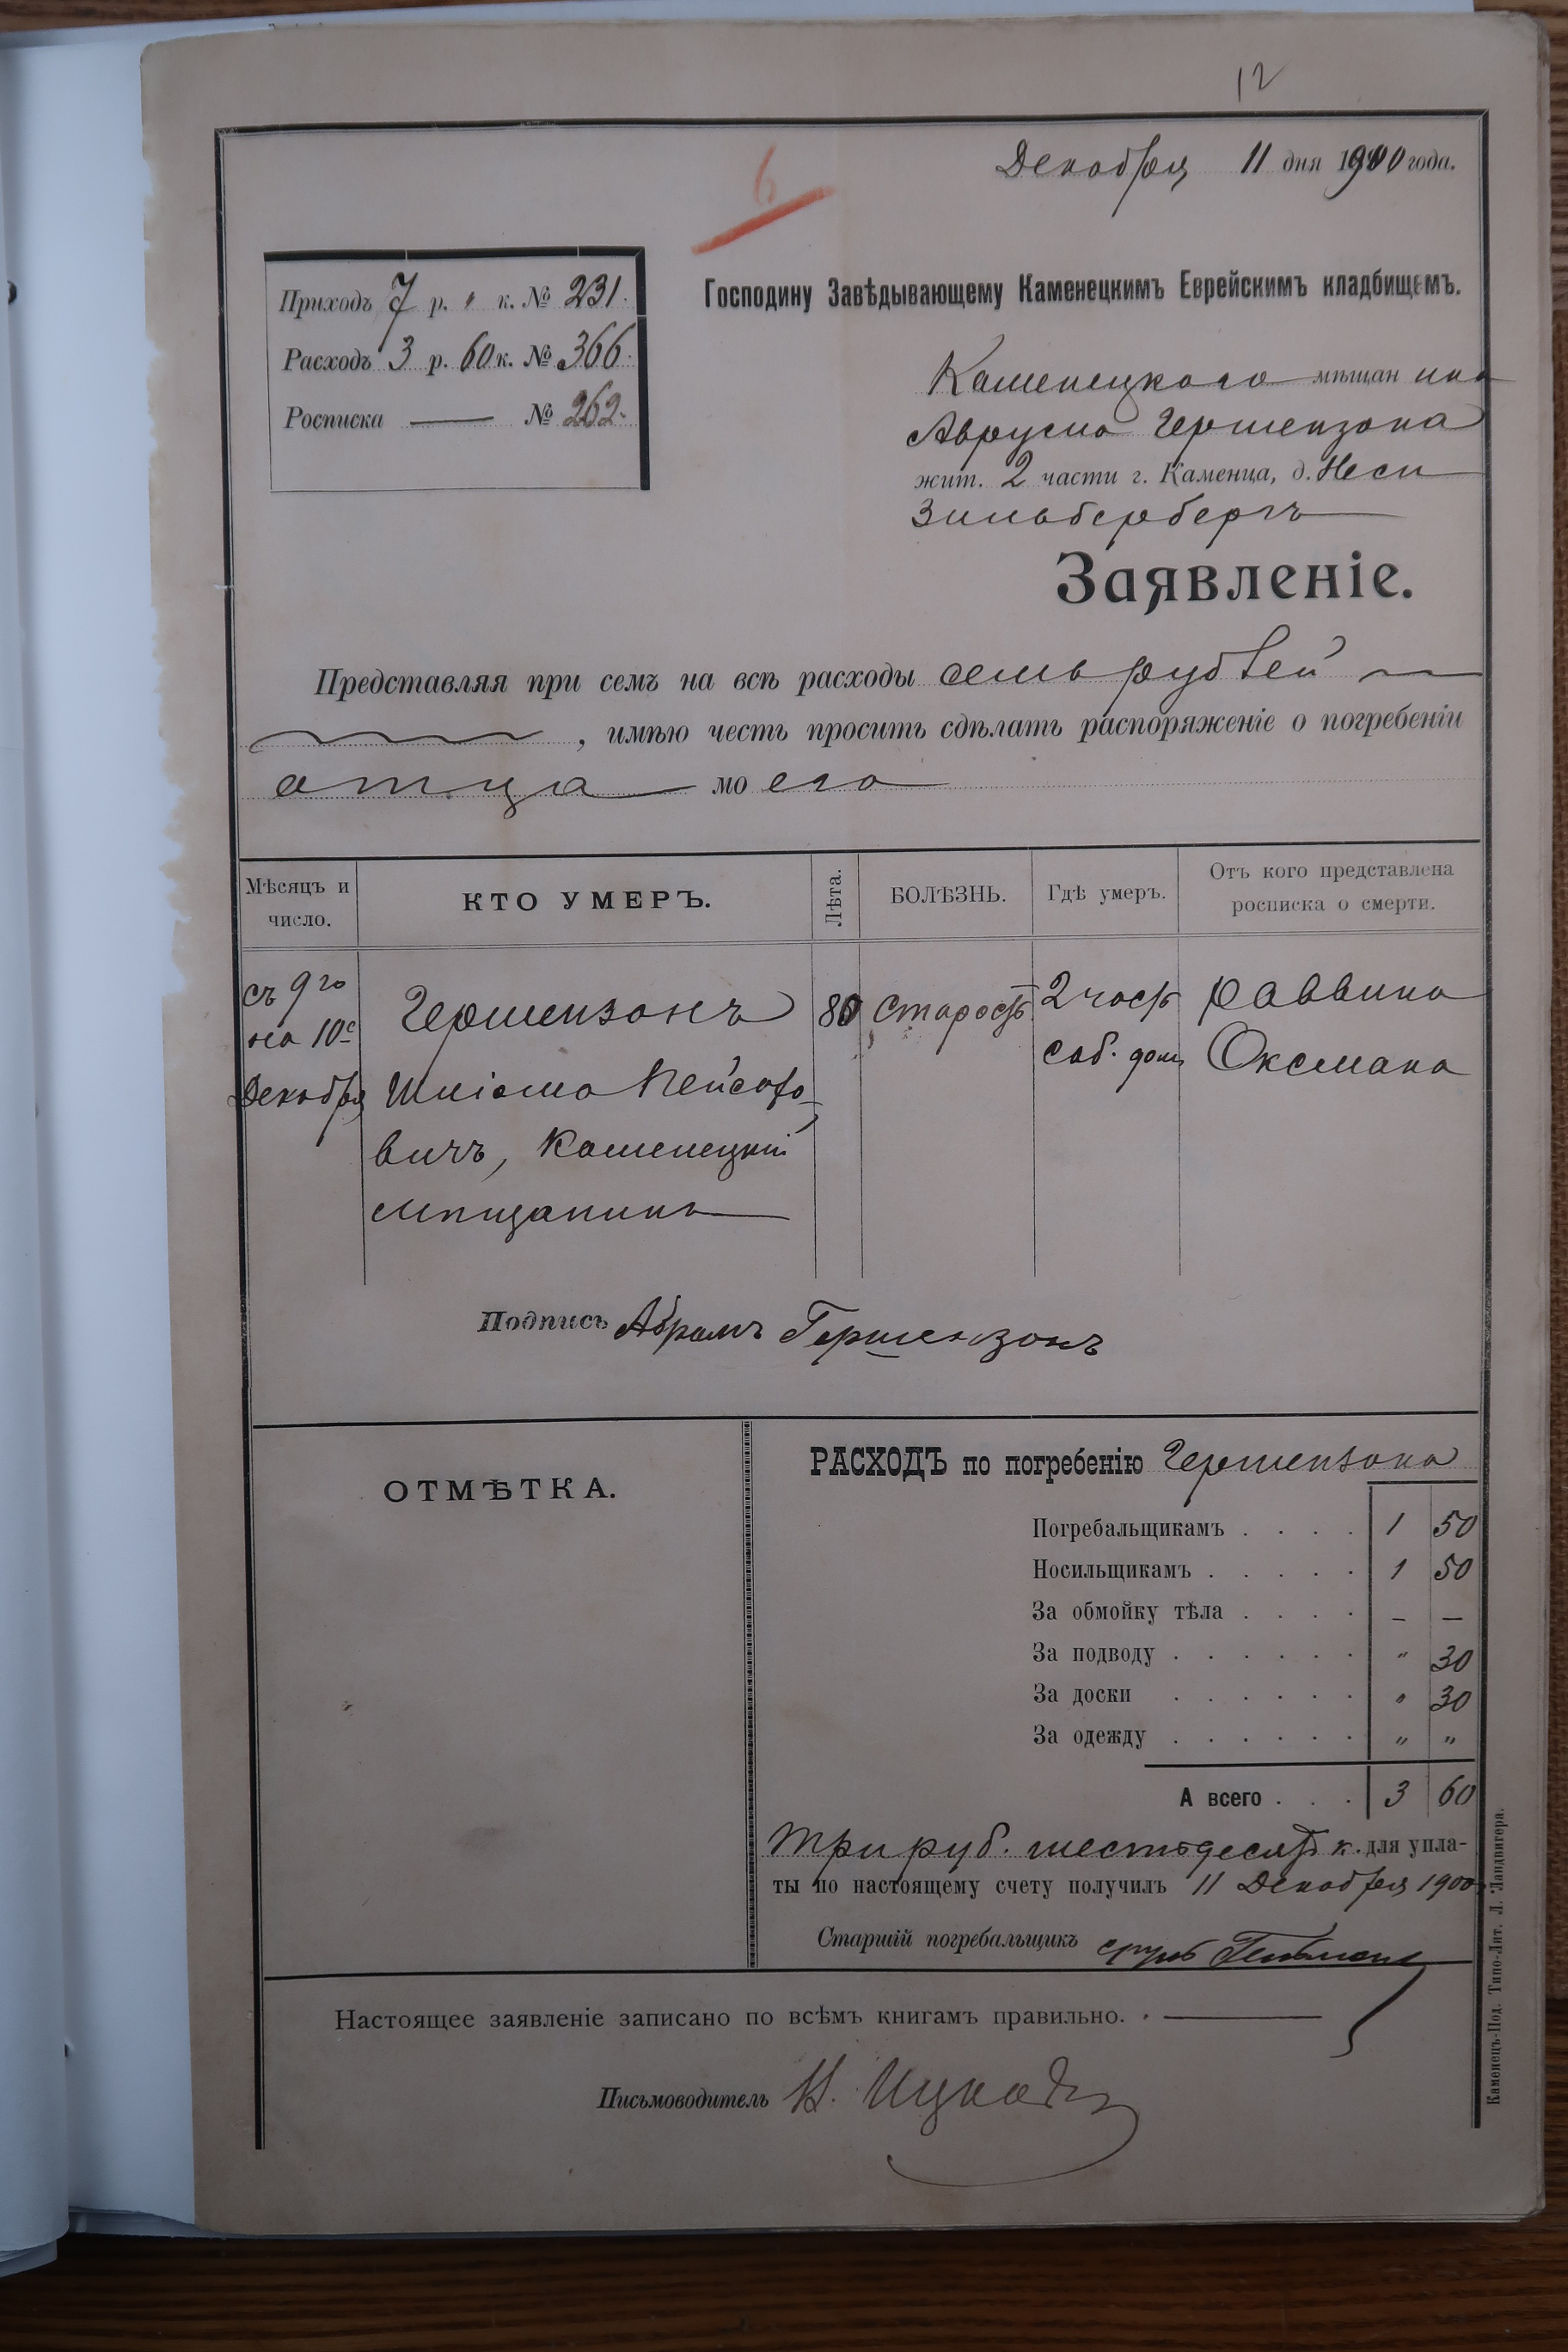 12
6
Декабря 11 дня 1900 года.
Приходъ 7 р. " к. № 231.
Расходъ 3 р. 60 к. № 366.
Росписка — № 262.
Господину Завѣдывающему Каменецкимъ Еврейскимъ кладбищемъ.
Каменецкого мѣщанина
Аврума Гершензона
жит. 2 части г. Каменца, д. Неси
Зильбербергъ
Заявленіе.
Представляя при семъ на всѣ расходы семь рублей
, имѣю честь просить сдѣлать распоряженіе о погребеніи
отца моего
Мѣсяцъ и число.
КТО УМЕРЪ.
Лѣта.
БОЛѢЗНЬ.
Гдѣ умеръ.
Отъ кого представлена росписка о смерти.
съ 9го на 10е Декабря
Гершензонъ
Шліома Пейсахо-
вичъ, Каменецкій
мѣщанинъ
80
Старость
2 часть
соб. домъ
раввина
Оксмана
Подпись Абрамъ Гершензонъ
ОТМѢТКА.
РАСХОДЪ по погребенію Гершензона
Погребальщикамъ . . . . 1 50
Носильщикамъ . . . . . 1 50
За обмойку тѣла . . . . – –
За подводу . . . . . . " 30
За доски . . . . . . " 30
За одежду . . . . . . " "
А всего . . . 3 60
Три руб. шестьдесятъ к. для упла-
ты по настоящему счету получилъ 11 Декабря 1900
Старшій погребальщикъ
Настоящее заявленіе записано по всѣмъ книгамъ правильно.
Письмоводитель
Каменецъ-Под. Типо-Лит. Л. Ландвигера.